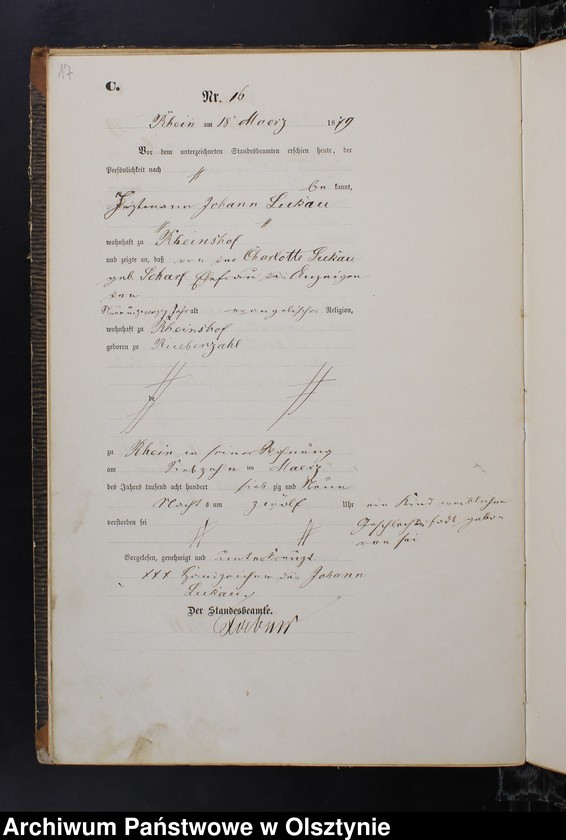 17
C.
Nr. 16
Rhein am 18 Maerz 1879
Vor dem unterzeichneten Standesbeamten erschien heute, der
Persönlichkeit nach
be kannt,
Johann Lukau
wohnhaft zu Rheinshof
und zeigte an, daß von der Charlotte Lukau
geb. Scharf Ehefrau des Anzeigen
den
Neunundzwanzig Jahr alt evangelischer Religion,
wohnhaft zu Rheinshof
geboren zu Ruebenzahl
zu Rhein in seiner Wohnung
am Siebzehn ten Maerz
des Jahres tausend acht hundert sieb zig und Neun
Nachts um zwölf Uhr ein Kind weiblichen
Geschlechts todt gebo
ren sei
verstorben sei
Vorgelesen, genehmigt und unterkreuzt
+++ Handzeichen des Johann
Lukau.
Der Standesbeamte.
Archiwum Państwowe w Olsztynie